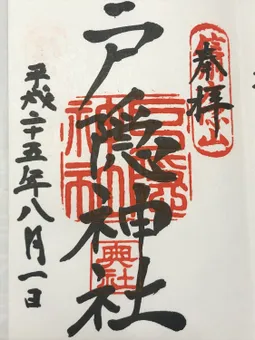 奉拝
戸隠神社
平成二十五年八月一日